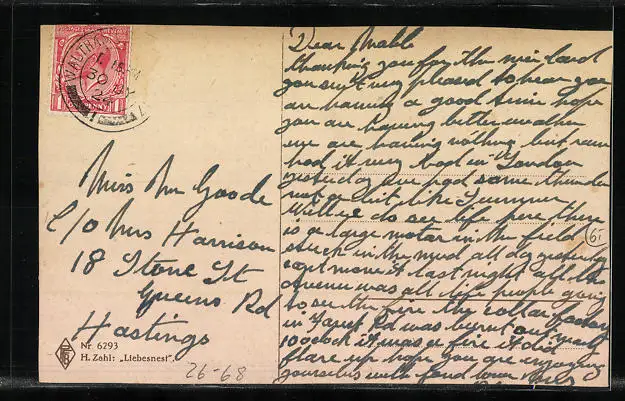 WALTHA
1.15 PM
30
24
PENNY
Miss M Goode
C/o Mrs Harrison
18 Stone St
Queens Rd
Hastings
Nr. 6293
H. Zahl: „Liebesnest".
26-68
Dear Mable
thanking you for the nice card
you sent very pleased to hear you
are having a good time hope
you are having better weather
we are having nothing but rain
had it very bad in London
yesterday we had some thunder
not a bit like Summer
Well we do see life here there
is a large motor in the field
stuck in the mud all day yesterday
cant move it last night all the
avenue was all life people going
to see the fire the collar factory
in Rd was burnt out nearly
10 oclock it was a fire it did
flare up hope you are enjoying
yourselves with fond love
6/-